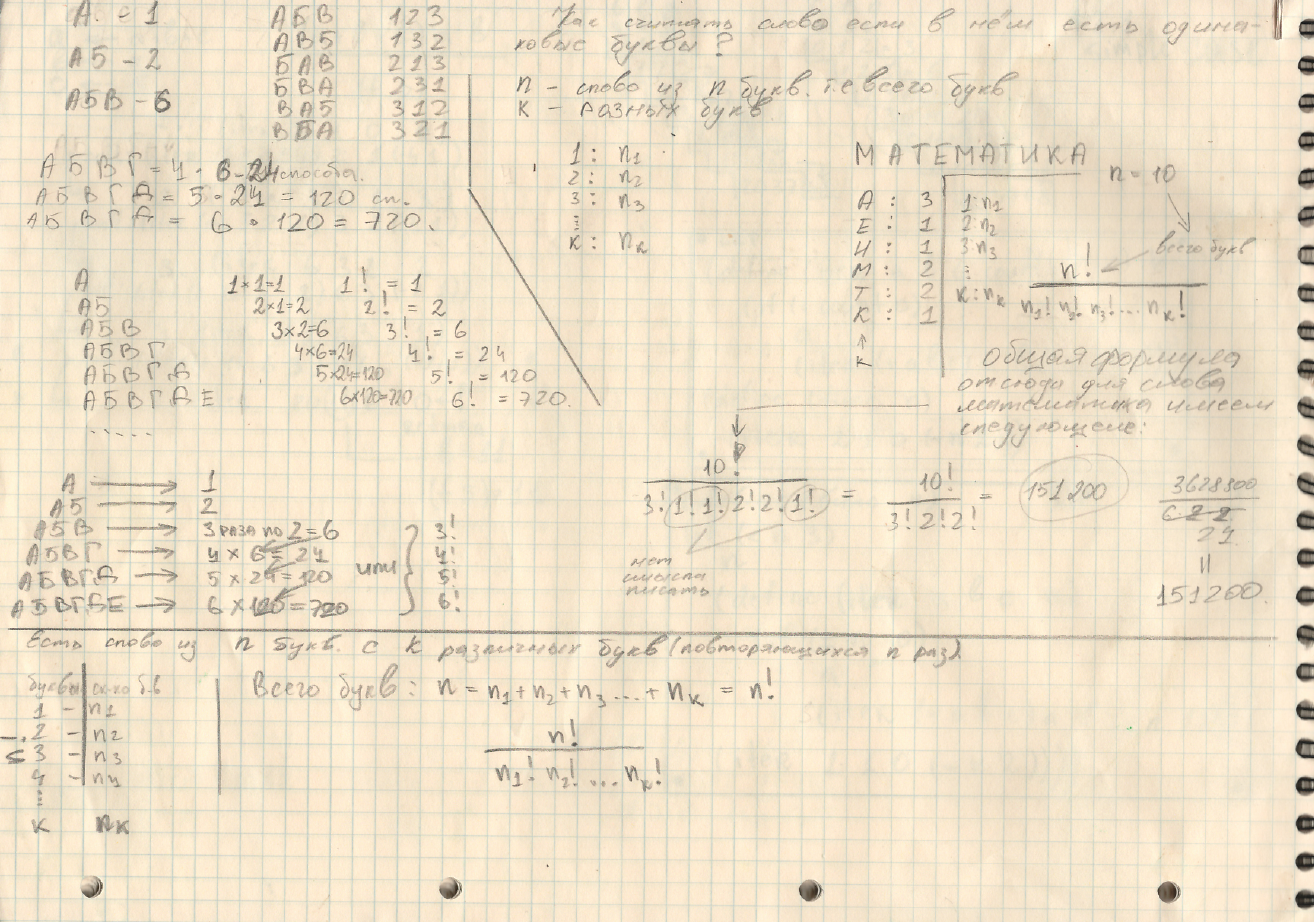 А. - 1
АБ - 2
АБВ - 6
АБВ 123
АВБ 132
БАВ 213
БВА 231
ВАБ 312
ВБА 321
АБВГ = 4 · 6 - 24 способа.
АБВГД = 5 · 24 = 120 сп.
АБВГДЕ = 6 · 120 = 720.
А 1×1=1 1! = 1
АБ 2×1=2 2! = 2
АБВ 3×2=6 3! = 6
АБВГ 4×6=24 4! = 24
АБВГД 5×24=120 5! = 120
АБВГДЕ 6×120=720 6! = 720.
.....
А → 1
АБ → 2
АБВ → 3 раза по 2 = 6
АБВГ → 4 × 6 = 24
АБВГД → 5 × 24 = 120
АБВГДЕ → 6 × 120 = 720
или
3!
4!
5!
6!
Как считать слово если в нём есть одина-
ковые буквы?
n - слово из n букв. т.е всего букв
К - разных букв.
1 : n₁
2 : n₂
3 : n₃
⋮
К : nк
МАТЕМАТИКА
n - 10
А : 3
Е : 1
И : 1
М : 2
Т : 2
К : 1
↑
К
1: n₁
2: n₂
3: n₃
⋮
К: nк
всего букв
n!
n₁! n₂! n₃! ... nк!
общая формула
отсюда для слова
математика имеем
следующее:
10!
3! 1! 1! 2! 2! 1!
=
10!
3! 2! 2!
= 151 200
нет
смысла
писать
3628800
6 2 2
24
=
151200.
Есть слово из n букв. с К различных букв (повторяющихся n раз)
буквы
1 - n₁
2 - n₂
3 - n₃
4 - n₄
⋮
К nк
Всего букв: n = n₁ + n₂ + n₃ ... + nк = n!
n!
n₁! n₂! ... nк!